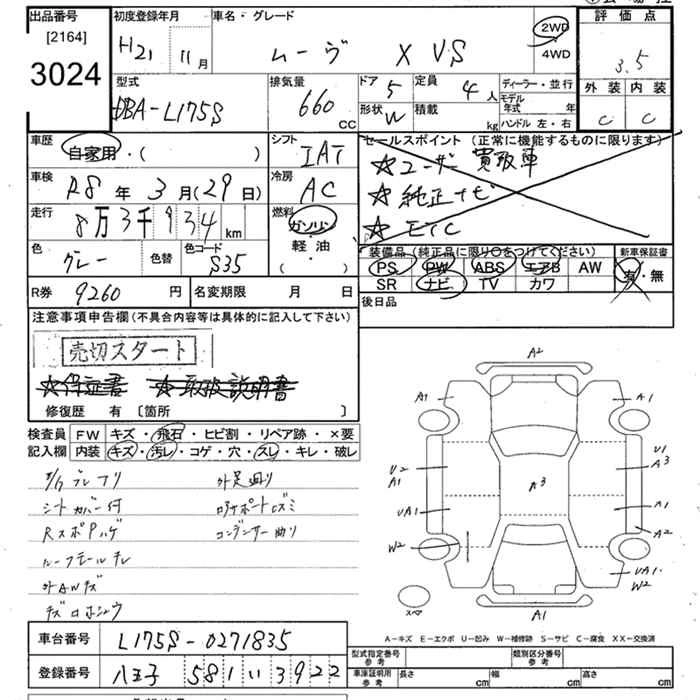 出品番号 初度登録年月 車名・グレード 評価点
[2164]
3024
H21 11月 ムーヴ X VS 2WD 3.5
4WD
型式 排気量 ドア 定員 ディーラー・並行 外装 内装
DBA-L175S 660 CC 5 4人 モデル年式 年 C C
形状 W 積載 kg ハンドル 左・右
車歴 シフト セールスポイント (正常に機能するものに限ります)
自家用・( ) IAT ☆ユーザー買取車
車検 冷房 ☆純正ナビ
R8年3月(29日) AC ☆ETC
走行 燃料
8万3千934km ガソリン
色 色替 色コード 軽油
グレー S35 ( ・ )
装備品 (純正品に限り○をつけてください) 新車保証書
PS PW ABS エアB AW 有・無
SR ナビ TV カワ
R券 9260円 名変期限 月 日 後日品
注意事項申告欄(不具合内容等は具体的に記入して下さい)
売切スタート
☆保証書 ☆取扱説明書
修復歴 有 [箇所 ]
検査員 FW キズ・飛石・ヒビ割・リペア跡・×要
記入欄 内装 キズ・汚レ・コゲ・穴・スレ・キレ・破レ
外足廻り
シートカバー付 ロアサポートサビ
RスポPハゲ コンデンサー曲り
ルーフモールキレ
外AWキズ
A2
A1 A1
U1
U2 A3 A3
A1
UA1 A1
A2
W2
UA1
W2
スペア A1
A-キズ E-エクボ U-凹み W-補修跡 S-サビ C-腐食 XX-交換済
車台番号 L175S-0271835
型式指定番号 参考 類別区分番号 参考
登録番号 八王子 581 い 3922
車庫証明用 参考 長さ cm 幅 cm 高さ cm